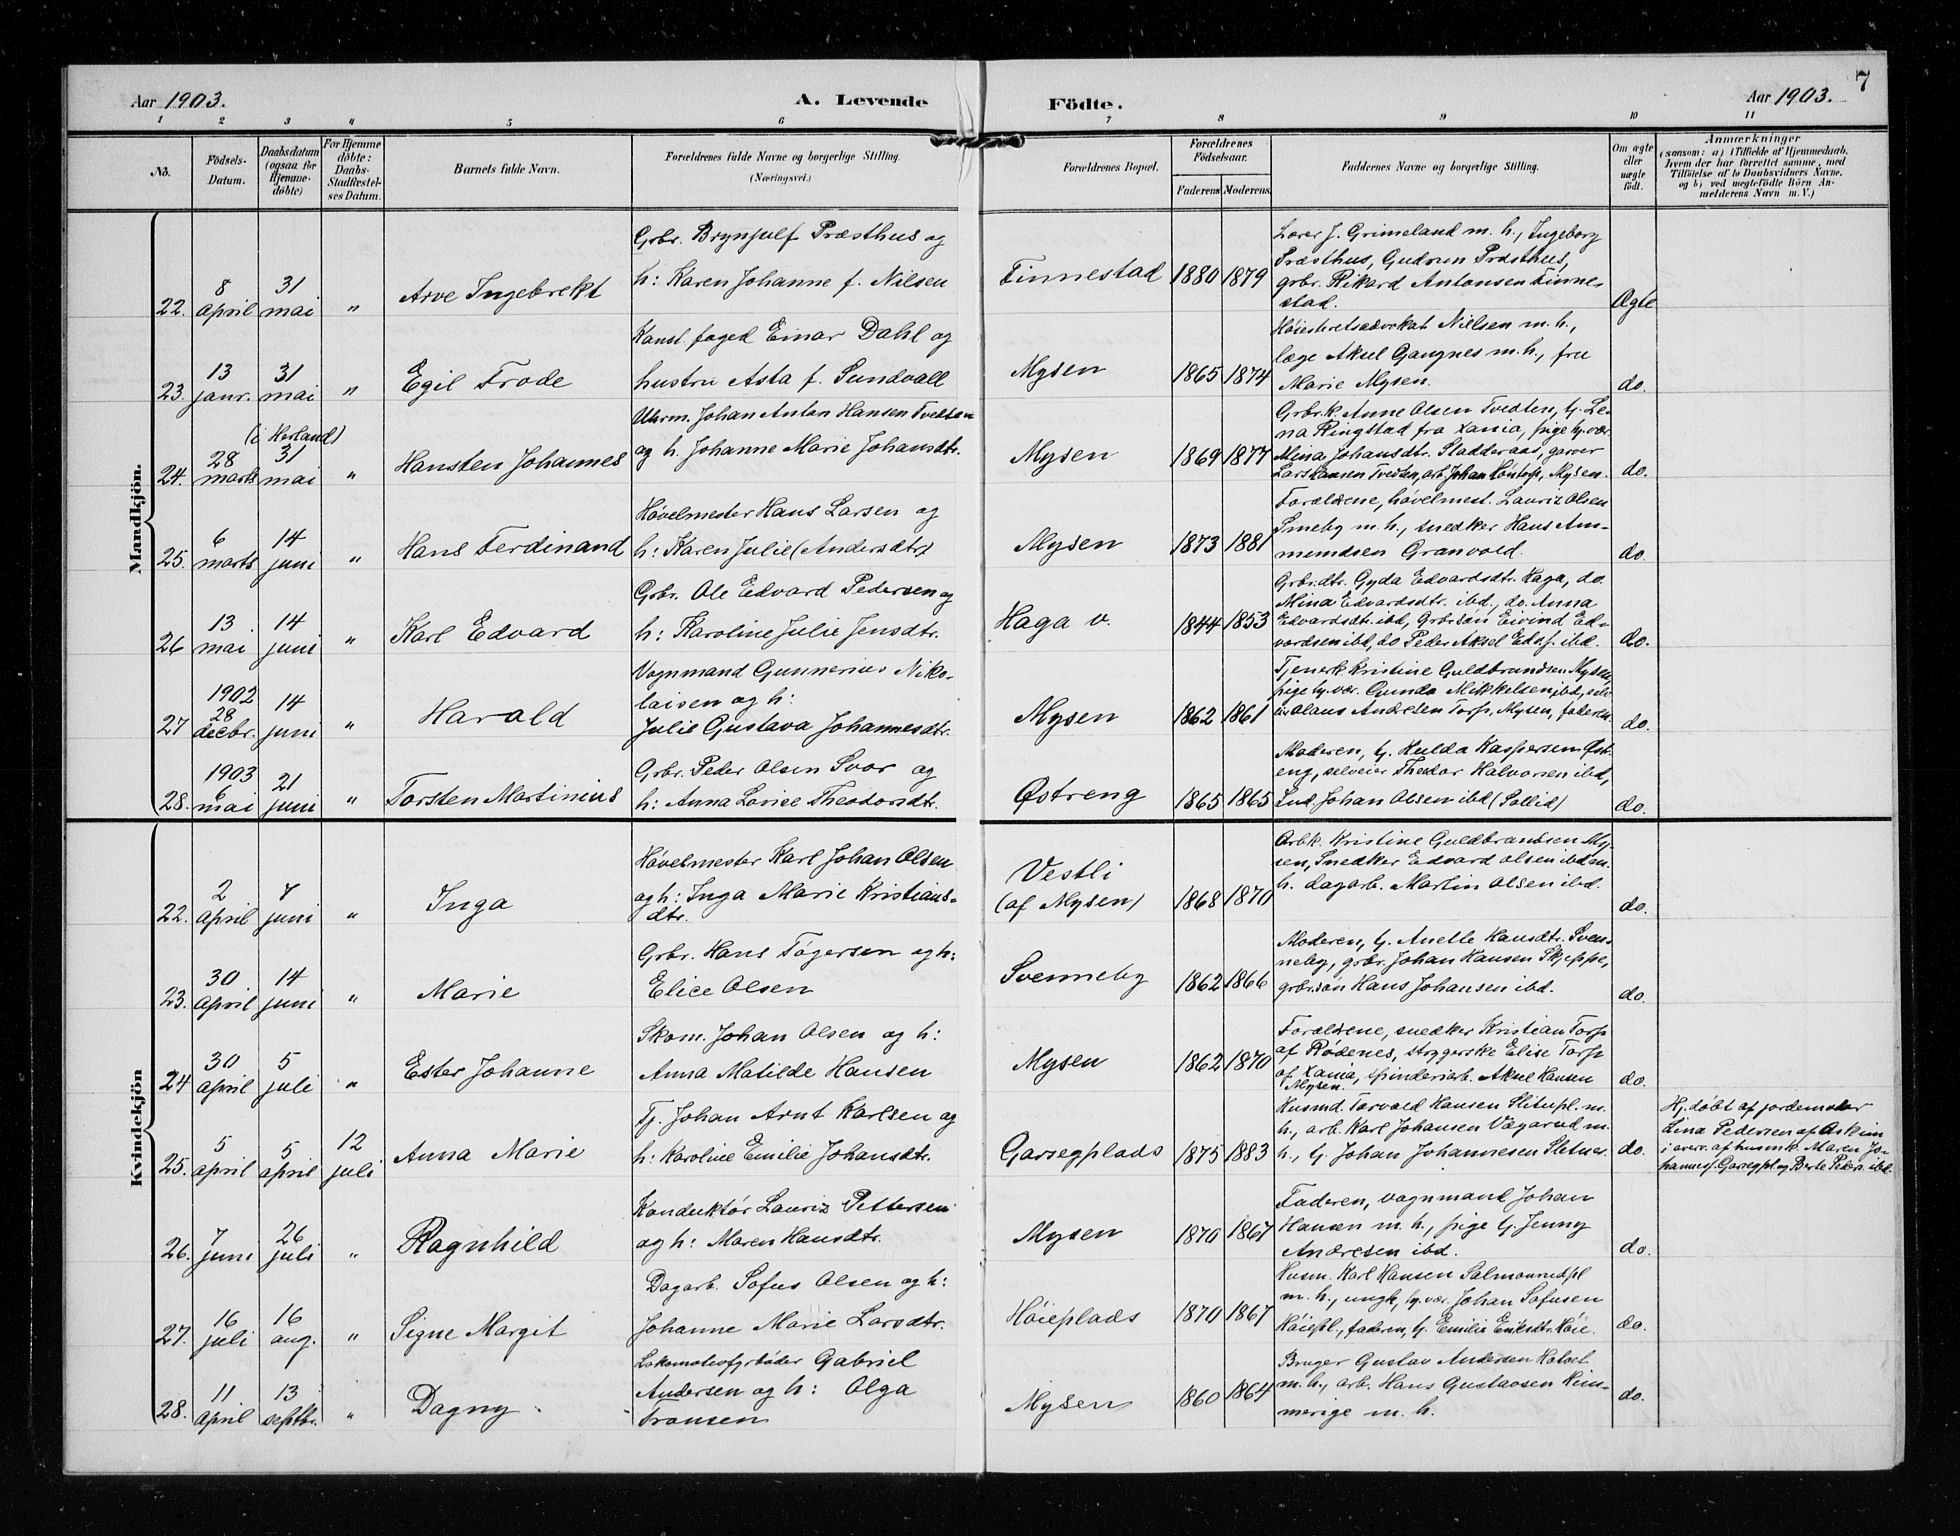 7
Aar 1903.
A. Levende Födte.
Aar 1903.
1 2 3 4 5 6 7 8 9 10 11
No.
Födsels-Datum.
Daabsdatum (ogsaa for Hjemmedöbte)
For Hjemmedöbte: Daabs-Stadfæstelses Datum.
Barnets fulde Navn.
Forældrenes fulde Navne og borgerlige Stilling.
(Næringsvei.)
Forældrenes Bopæl.
Forældrenes Födselsaar.
Faderens Moderens
Faddernes Navne og borgerlige Stilling.
Om ægte eller uægte födt.
Anmærkninger
(saasom: a) i Tilfælde af Hjemmedaab,
hvem der har forrettet samme, med
Tilföielse af to Daabsvidners Navne,
og b) ved uægtefödte Börn An-
melderens Navn m. V.)
Mandkjön.
22. 8 april 31 mai " Arve Ingebrekt
Grbr. Brynjulf Præsthus og
h: Karen Johanne f. Nilsen
Finnestad 1880 1879
Lærer J. Grimeland m. h., Ingeborg
Præsthus, Gudrun Præsthus,
grbr. Rikard Antonsen Finne-
stad.
Ægte
23. 13 janr. 31 mai " Egil Frode
Konst. foged Einar Dahl og
hustru Asta f. Sundvall
Mysen 1865 1874
Høiesteretsadvokat Nielsen m. h.,
læge Aksel Gangnes m. h., fru
Marie Mysen.
do.
24. 28 marts (i Herland) 31 mai " Hansten Johannes
Uhrm. Johan Anton Hansen Tvedten
og h. Johanne Marie Johansdtr.
Mysen 1869 1877
Grbr.k. Anne Olsen Tvedten, tj. Le-
na Ringstad fra Xania, pige tj. vær.
Mina Johansdtr. Sladderaas, garver
Lars Hansen Tvedten, arb. Johan Lintorp, Mysen.
do.
25. 6 marts 14 juni " Hans Ferdinand
Høvelmester Hans Larsen og
h: Karen Julie (Andersdtr)
Mysen 1873 1881
Forældrene, høvelmest. Lauriz Olsen
Smeby m. h., snedker Hans Am-
mundsen Granvold.
do.
26 13 mai 14 juni " Karl Edvard
Grbr. Ole Edvard Pedersen og
h: Karoline Julie Jensdtr.
Haga v. 1844 1853
Grbr.dtr. Gyda Edvardsdtr. Haga, do.
Mina Edvardsdtr. ibd., do. Anna
Edvardsdtr. ibd, Grbr.søn Eivind Ed-
vardsen ibd, do Peder Aksel Eds. ibd.
do.
27 1902 28 decbr. 14 juni " Harald
Vognmand Gunnerius Niko-
laisen og h:
Julie Gustava Johannesdtr.
Mysen 1862 1861
Tjener.k. Kristine Guldbrandsen Mysen,
pige tj. vær. Gunda Mikkelsen ibd, selv-
eier Olaus Andresen Torp, Mysen, faderen.
do.
28. 1903 6 mai 21 juni " Torsten Martinius
Grbr. Peder Olsen Svor og
h: Anna Lovise Theodorsdtr.
Østreng 1865 1865
Moderen, tj. Hulda Kaspersen Øst-
eng, selveier Theodor Halvorsen ibd,
Ind. Johan Olsen ibd (Sollid)
do.
Kvindekjön
22. 2 april 7 juni " Inga
Høvelmester Karl Johan Olsen
og h: Inga Marie Kristians-
dtr.
Vestli
(af Mysen) 1868 1870
Arb.k. Kristine Guldbrandsen My-
sen, Snedker Edvard Olsen ibd m.
h. dagarb. Martin Olsen ibd.
do.
23. 30 april 14 juni " Marie
Grbr. Hans Tøgersen og h:
Elice Olsen
Svenneby 1862 1866
Moderen, tj. Anette Hansdtr. Sven-
neby, grbr. Johan Hansen Skjeppe,
grbr.søn Hans Johansen ibd.
do.
24 30 april 5 juli " Ester Johanne
Skom. Johan Olsen og h:
Anna Matilde Hansen
Mysen 1862 1870
Forældrene, snedker Kristian Torp
af Rødenes, strygerske Elise Torp
af Xania, spinderiarb. Aksel Hansen
Mysen.
do.
25. 5 april 5 april 12 juli Anna Marie
Tj. Johan Arnt Karlsen og
h: Karoline Emilie Johansdtr.
Garsegplads 1875 1883
Husmd. Torvald Hansen Slitupl. m.
h., arb. Karl Johansen Vegarud m.
h., tj. Johan Johannesen Sletner.
do.
Hj. døbt af jordemoder
Lina Pedersen af Askim
i overv. af husm.k. Maren Jo-
hannes. Garsegpl og Berte Peders. ibd.
26. 7 juni 26 juli " Ragnhild
Konduktør Lauriz Pettersen
og h: Maren Hansdtr.
Mysen 1870 1867
Faderen, vognmand Johan
Hansen m. h., pige tj. Jenny
Andresen ibd.
do.
27. 16 juli 16 aug. " Signe Margit
Dagarb. Sofus Olsen og h:
Johanne Marie Larsdtr.
Høieplads 1870 1867
Husm. Karl Hansen Salmonrudpl
m. h., ungk, tj. vær. Johan Sofusen
Høiepl., faderen, tj. Emilie Eriksdtr. Høie.
do.
28. 11 april 13 septbr. " Dagny
Lokomotivfyrbøder Gabriel
Andersen og h: Olga
Fransen
Mysen 1860 1864
Bruger Gustav Andersen
m. h., arb. Hans Gustavsen Him-
merige m. h.
do.